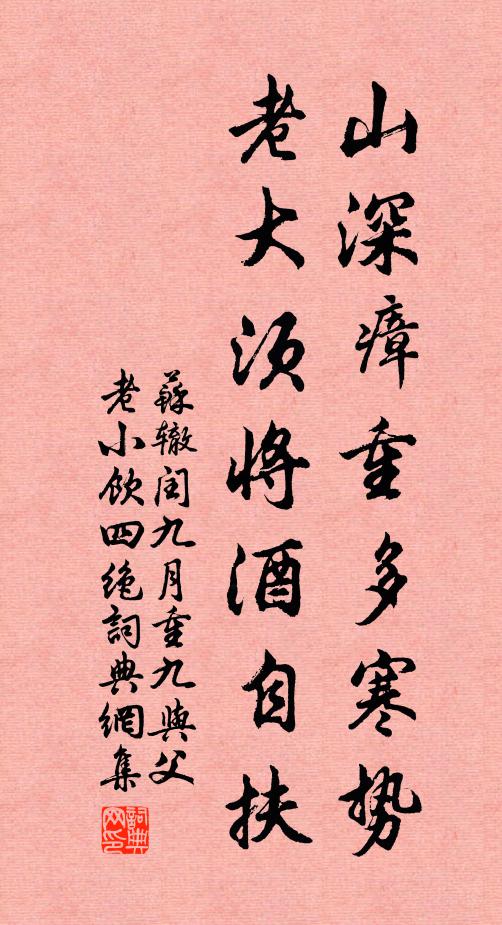 山深瘴重多寒势
老大须将酒自扶
蘇辙闰九月重九與父
老小饮四绝詞典網集
詞典网印